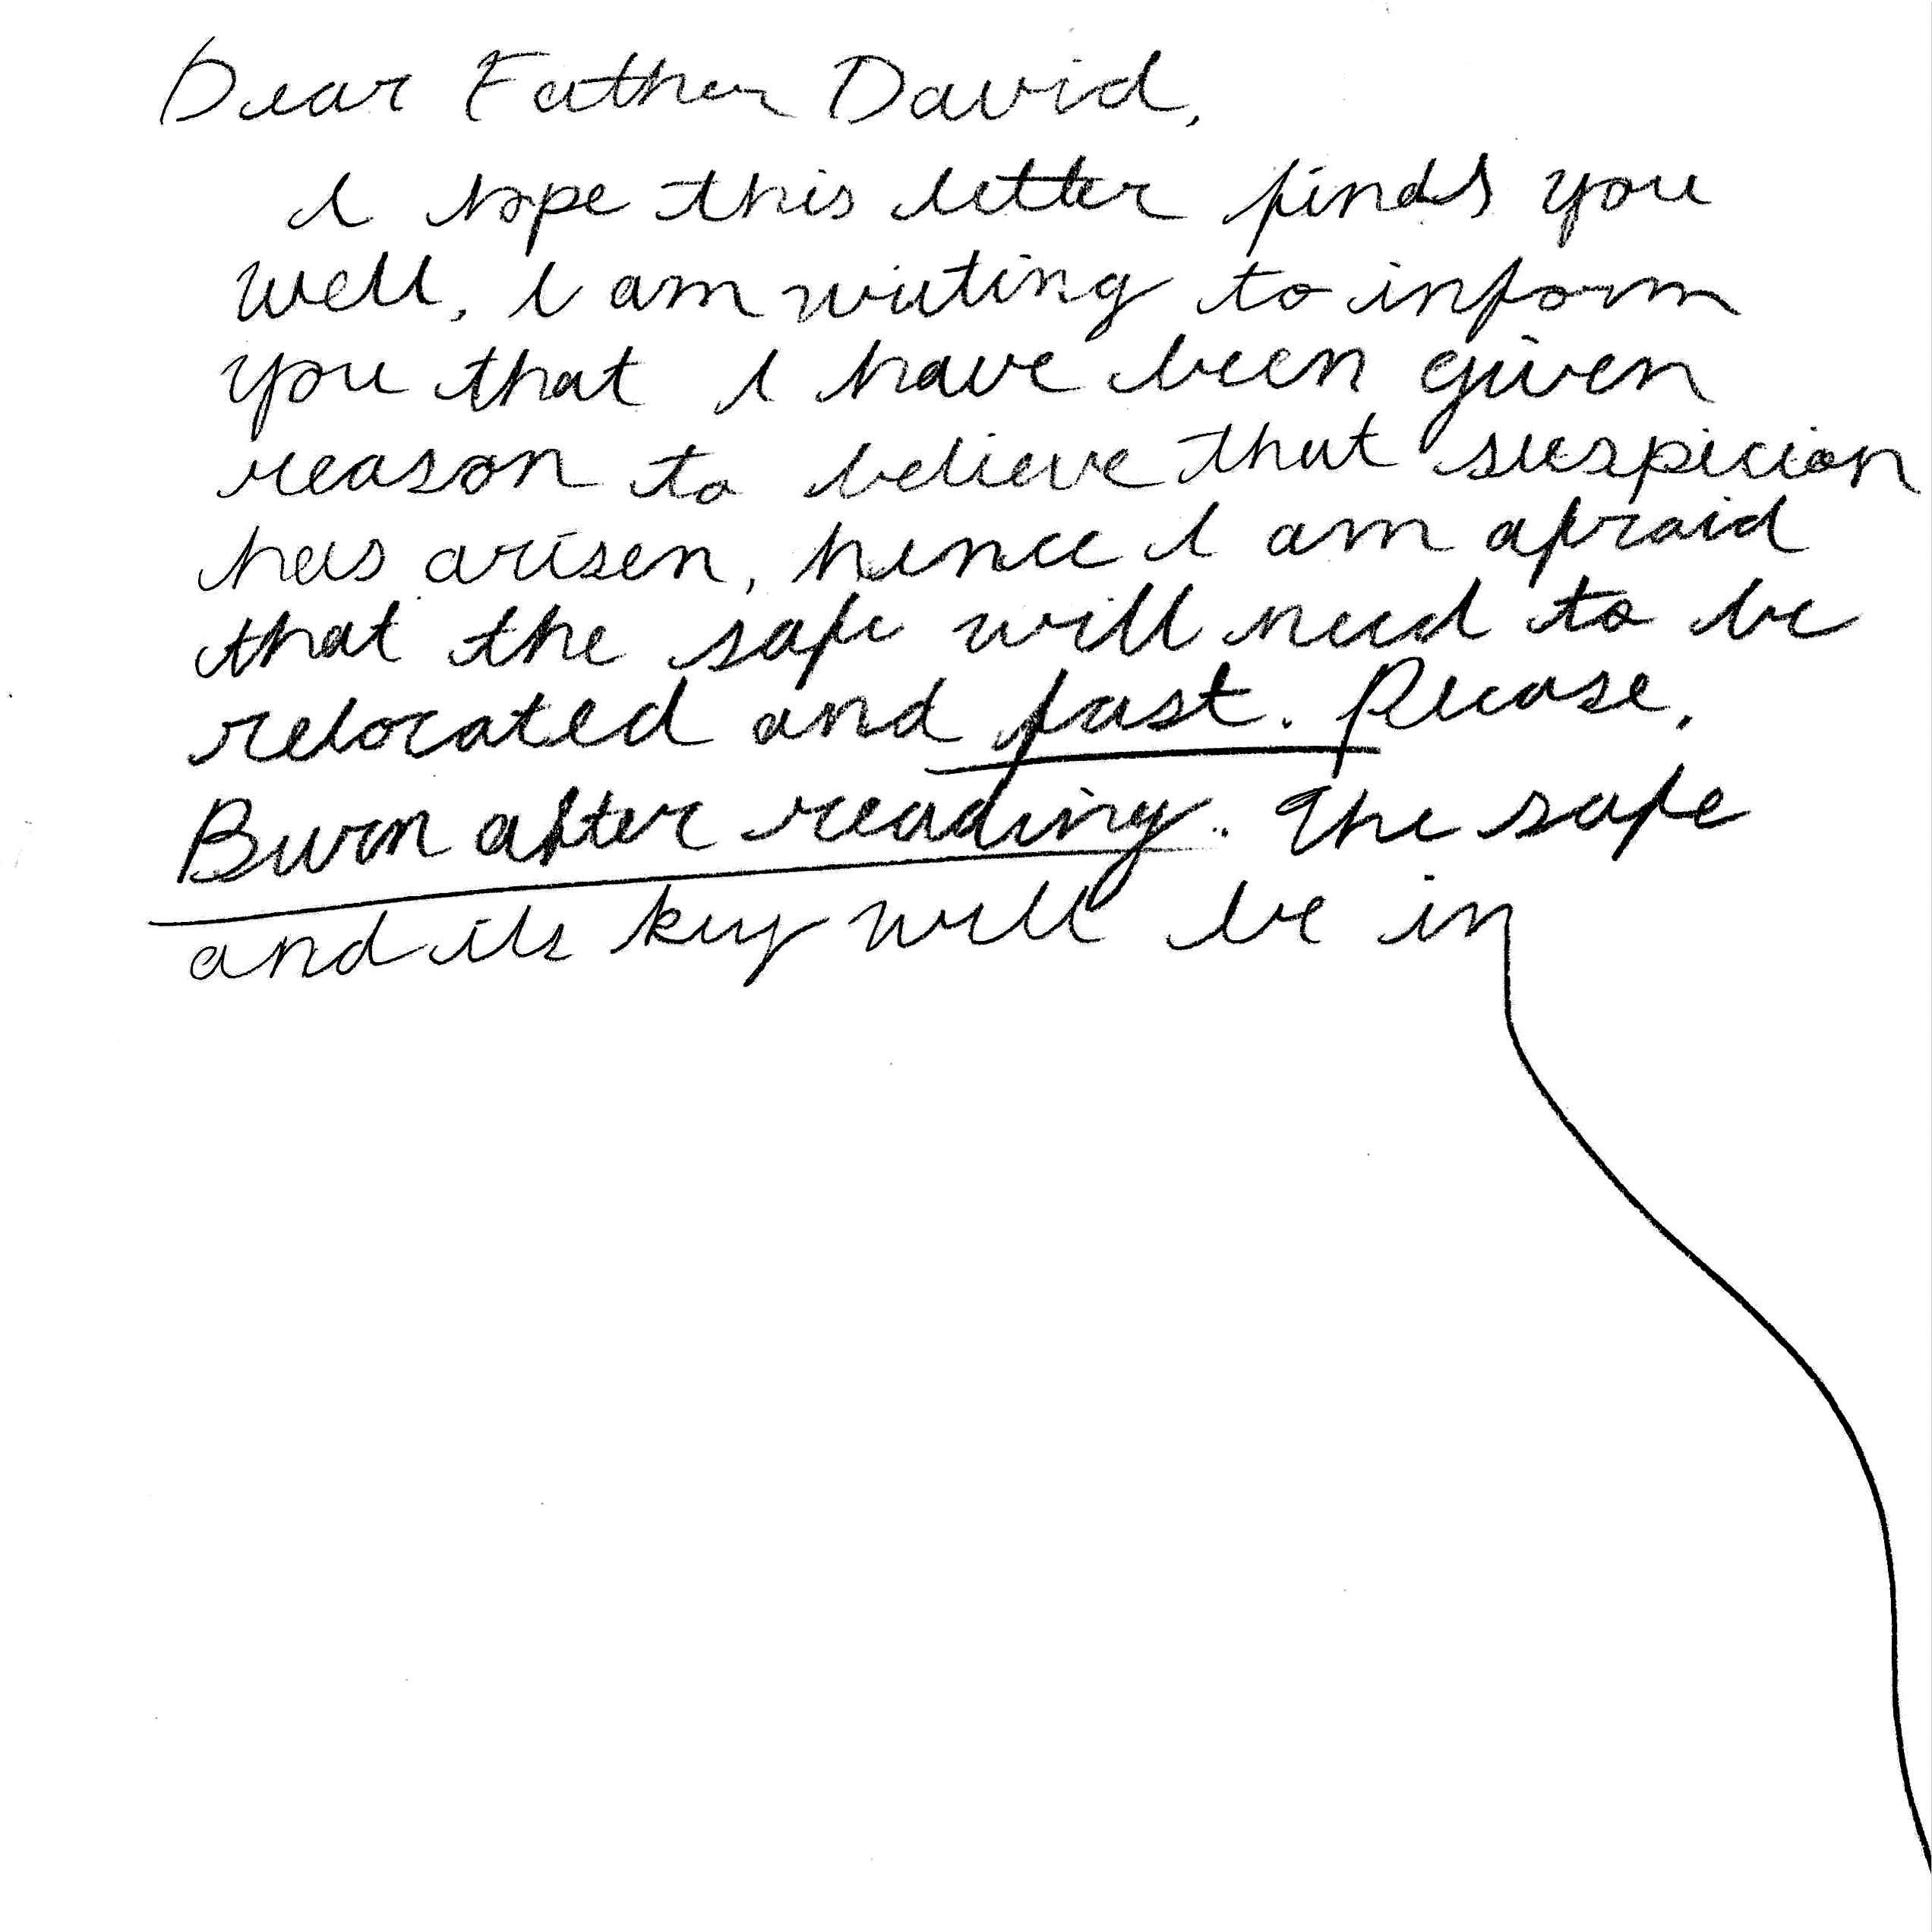 Dear Father David,
I hope this letter finds you
well, I am writing to inform
you that I have been given
reason to believe that suspicion
has arisen, hence I am afraid
that the safe will need to be
relocated and fast. Please,
Burn after reading. The safe
and its key will be in